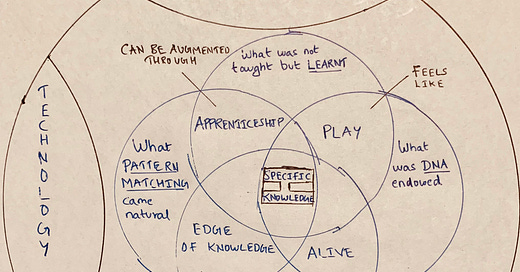 CAN BE AUGMENTED
THROUGH
What was not
taught but LEARNT
FEELS
LIKE
TECHNOLOGY
APPRENTICESHIP
PLAY
What
PATTERN
MATCHING
came
natural
What
was DNA
endowed
SPECIFIC
KNOWLEDGE
EDGE
OF KNOWLEDGE
ALIVE